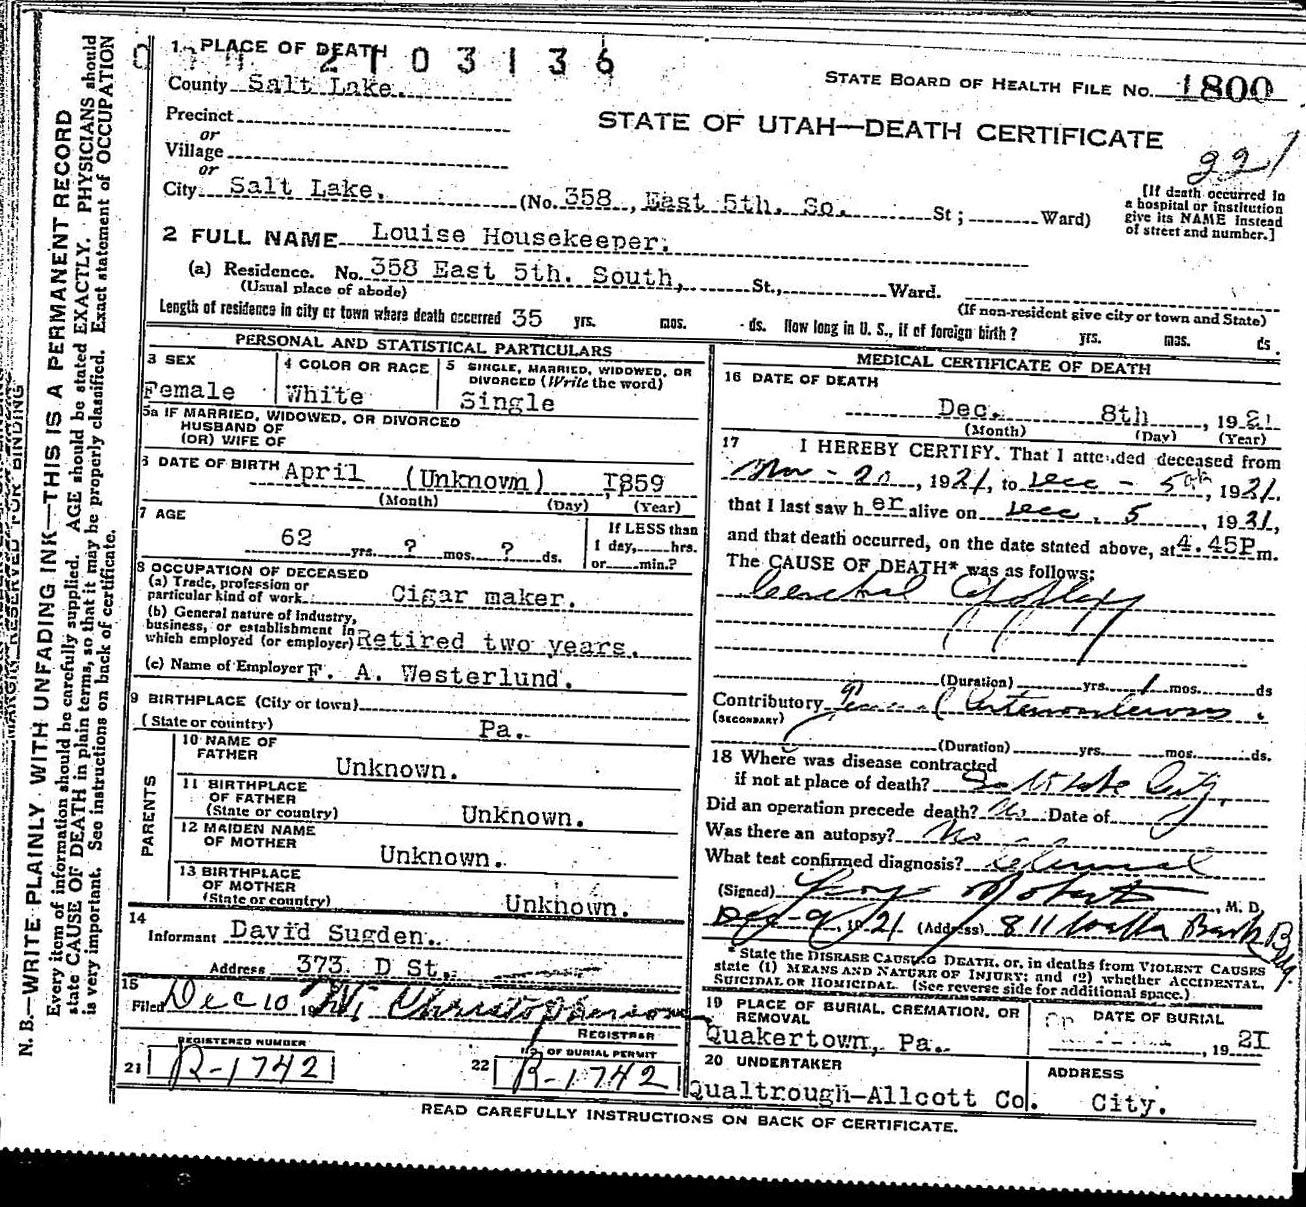 N. B.—WRITE PLAINLY WITH UNFADING INK—THIS IS A PERMANENT RECORD
Every item of information should be carefully supplied. AGE should be stated EXACTLY. PHYSICIANS should
state CAUSE OF DEATH in plain terms, so that it may be properly classified. Exact statement of OCCUPATION
is very important. See instructions on back of certificate.
MARGIN RESERVED FOR BINDING
1 PLACE OF DEATH
2103136
STATE BOARD OF HEALTH FILE No. 1800
County Salt Lake.
STATE OF UTAH—DEATH CERTIFICATE
221
Precinct
or
Village
or
City Salt Lake. (No. 358, East 5th. So. St; Ward)
[If death occurred in
a hospital or institution
give its NAME instead
of street and number.]
2 FULL NAME Louise Housekeeper.
(a) Residence. No. 358 East 5th. South, St., Ward.
(Usual place of abode) (If non-resident give city or town and State)
Length of residence in city or town where death occurred 35 yrs. mos. ds. How long in U. S., if of foreign birth? yrs. mos. ds.
PERSONAL AND STATISTICAL PARTICULARS
3 SEX
Female
4 COLOR OR RACE
White
5 SINGLE, MARRIED, WIDOWED, OR
DIVORCED (Write the word)
Single
5a IF MARRIED, WIDOWED, OR DIVORCED
HUSBAND OF
(OR) WIFE OF
6 DATE OF BIRTH April (Unknown) I859
(Month) (Day) (Year)
7 AGE
62 yrs. ? mos. ? ds.
If LESS than
1 day, hrs.
or min.?
8 OCCUPATION OF DECEASED
(a) Trade, profession or
particular kind of work Cigar maker.
(b) General nature of industry,
business, or establishment in
which employed (or employer) Retired two years.
(c) Name of Employer F. A. Westerlund.
9 BIRTHPLACE (City or town)
(State or country) Pa.
PARENTS
10 NAME OF
FATHER Unknown.
11 BIRTHPLACE
OF FATHER
(State or country) Unknown.
12 MAIDEN NAME
OF MOTHER Unknown.
13 BIRTHPLACE
OF MOTHER
(State or country) Unknown.
14
Informant David Sugden.
Address 373 D St.
15
Filed Dec 10 19 Christophersom
REGISTRAR
REGISTERED NUMBER
21 R-1742
OF BURIAL PERMIT
22 R-1742
MEDICAL CERTIFICATE OF DEATH
16 DATE OF DEATH
Dec. 8th, 1921
(Month) (Day) (Year)
17 I HEREBY CERTIFY. That I attended deceased from
Nov - 20, 1921, to Dec - 5th, 1921.
that I last saw her alive on Dec. 5, 1921,
and that death occurred, on the date stated above, at 4.45P m.
The CAUSE OF DEATH* was as follows:
Cerebral Apoplexy
(Duration) yrs. 1 mos. ds
Contributory General Arteriosclerosis.
(SECONDARY)
(Duration) yrs. mos. ds.
18 Where was disease contracted
if not at place of death? Salt Lake City.
Did an operation precede death? No Date of
Was there an autopsy? No
What test confirmed diagnosis? Clinical
(Signed) Roberts, M. D.
Dec-9, 1921 (Address) 811 Walker Bank Bldg.
* State the DISEASE CAUSING DEATH, or, in deaths from VIOLENT CAUSES
state (1) MEANS AND NATURE OF INJURY; and (2) whether ACCIDENTAL,
SUICIDAL OR HOMICIDAL. (See reverse side for additional space.)
19 PLACE OF BURIAL, CREMATION, OR
REMOVAL
Quakertown, Pa.
DATE OF BURIAL
, 19 2I
20 UNDERTAKER
Qualtrough-Allcott Co.
ADDRESS
City.
READ CAREFULLY INSTRUCTIONS ON BACK OF CERTIFICATE.